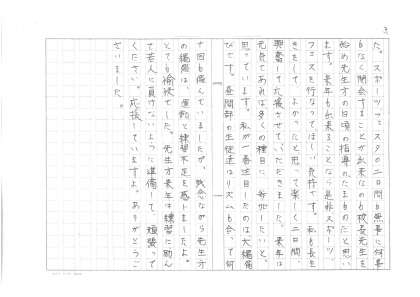 3
た。スポーツフェスタが二日間も無事に何事
もなく開会することが出来たのも校長先生を
始め先生方の日頃の指導のたまものだと思い
ます。来年も出来ることなら是非スポーツ
フェスを行なってほしい気持です。私も長生
きをして、よかったと思って楽しく二日間、
興奮して応援させていただきました。来年は
元気であれば多くの種目に参加したいと
思っています。私が一番注目したのは大縄飛
びです。昼間部の生徒達はリズムも合って何
十回も飛んでいましたが、残念ながら先生方
の縄飛は、運動と練習不足を感じましたよ。
とても愉快でした。先生方来年は練習に励ん
で若人に負けないように準備して、頑張って
ください。応援していますよ。ありがとうご
ざいました。